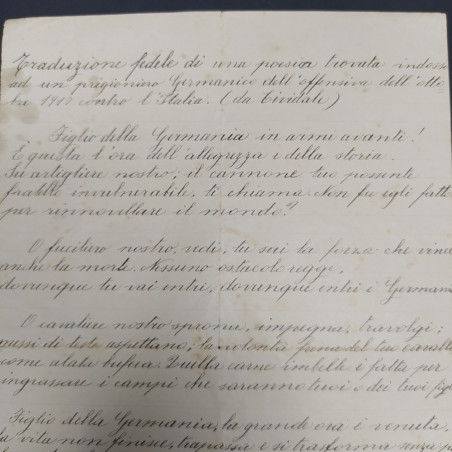 Traduzione fedele di una poesia trovata indosso
ad un prigioniero Germanico dell'offensiva dell'otto-
bre 1917 contro l'Italia. (da Cividale)
Figlio della Germania in armi avanti!
È questa l'ora dell'allegrezza e della storia.
Su artigliere nostro; il cannone tuo possente
fratello invulnerabile, ti chiama. Non fu egli fatto
per rinnovellare il mondo?
O fuciliere nostro, vedi, tu sei la forza che vince
anche la morte. Nessuno ostacolo regge,
dovunque tu vai entri, dovunque entri è Germania
O cavaliere nostro sprona, impugna, travolgi;
di teste aspettano; la volontà del tuo cavallo
come alata bufera. Quella carne imbelle è fatta per
ingrassare i campi che saranno tuoi o dei tuoi figli
Figlio della Germania, la grande ora è venuta,
la vita non finisce, trapassa e si trasforma senza